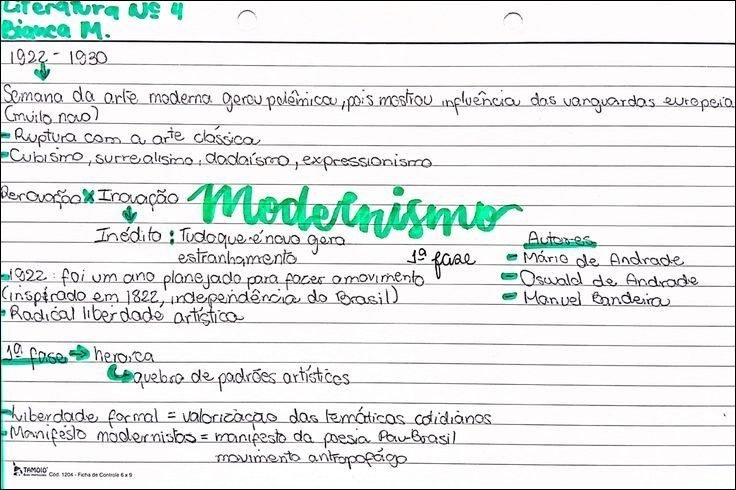 Literatura Nº 4
Bianca M.
1922 - 1930
Semana da arte moderna gerou polêmica, pois mostrou influência das vanguardas europeia
(muito novo)
- Ruptura com a arte clássica
- Cubismo, surrealismo, dadaísmo, expressionismo
Renovação x Inovação
Modernismo
Inédito: Tudo que é novo gera
estranhamento
1ª fase
Autores
- Mário de Andrade
- Oswald de Andrade
- Manuel Bandeira
- 1922: foi um ano planejado para fazer o movimento
(inspirado em 1822, independência do Brasil)
- Radical liberdade artística
1ª fase → heroica
quebra de padrões artísticos
- Liberdade formal = valorização das temáticas cotidianas
- Manifesto modernistas = manifesto da poesia Pau-Brasil
movimento antropofágo
TAMOIO Cód. 1204 - Ficha de Controle 6 x 9